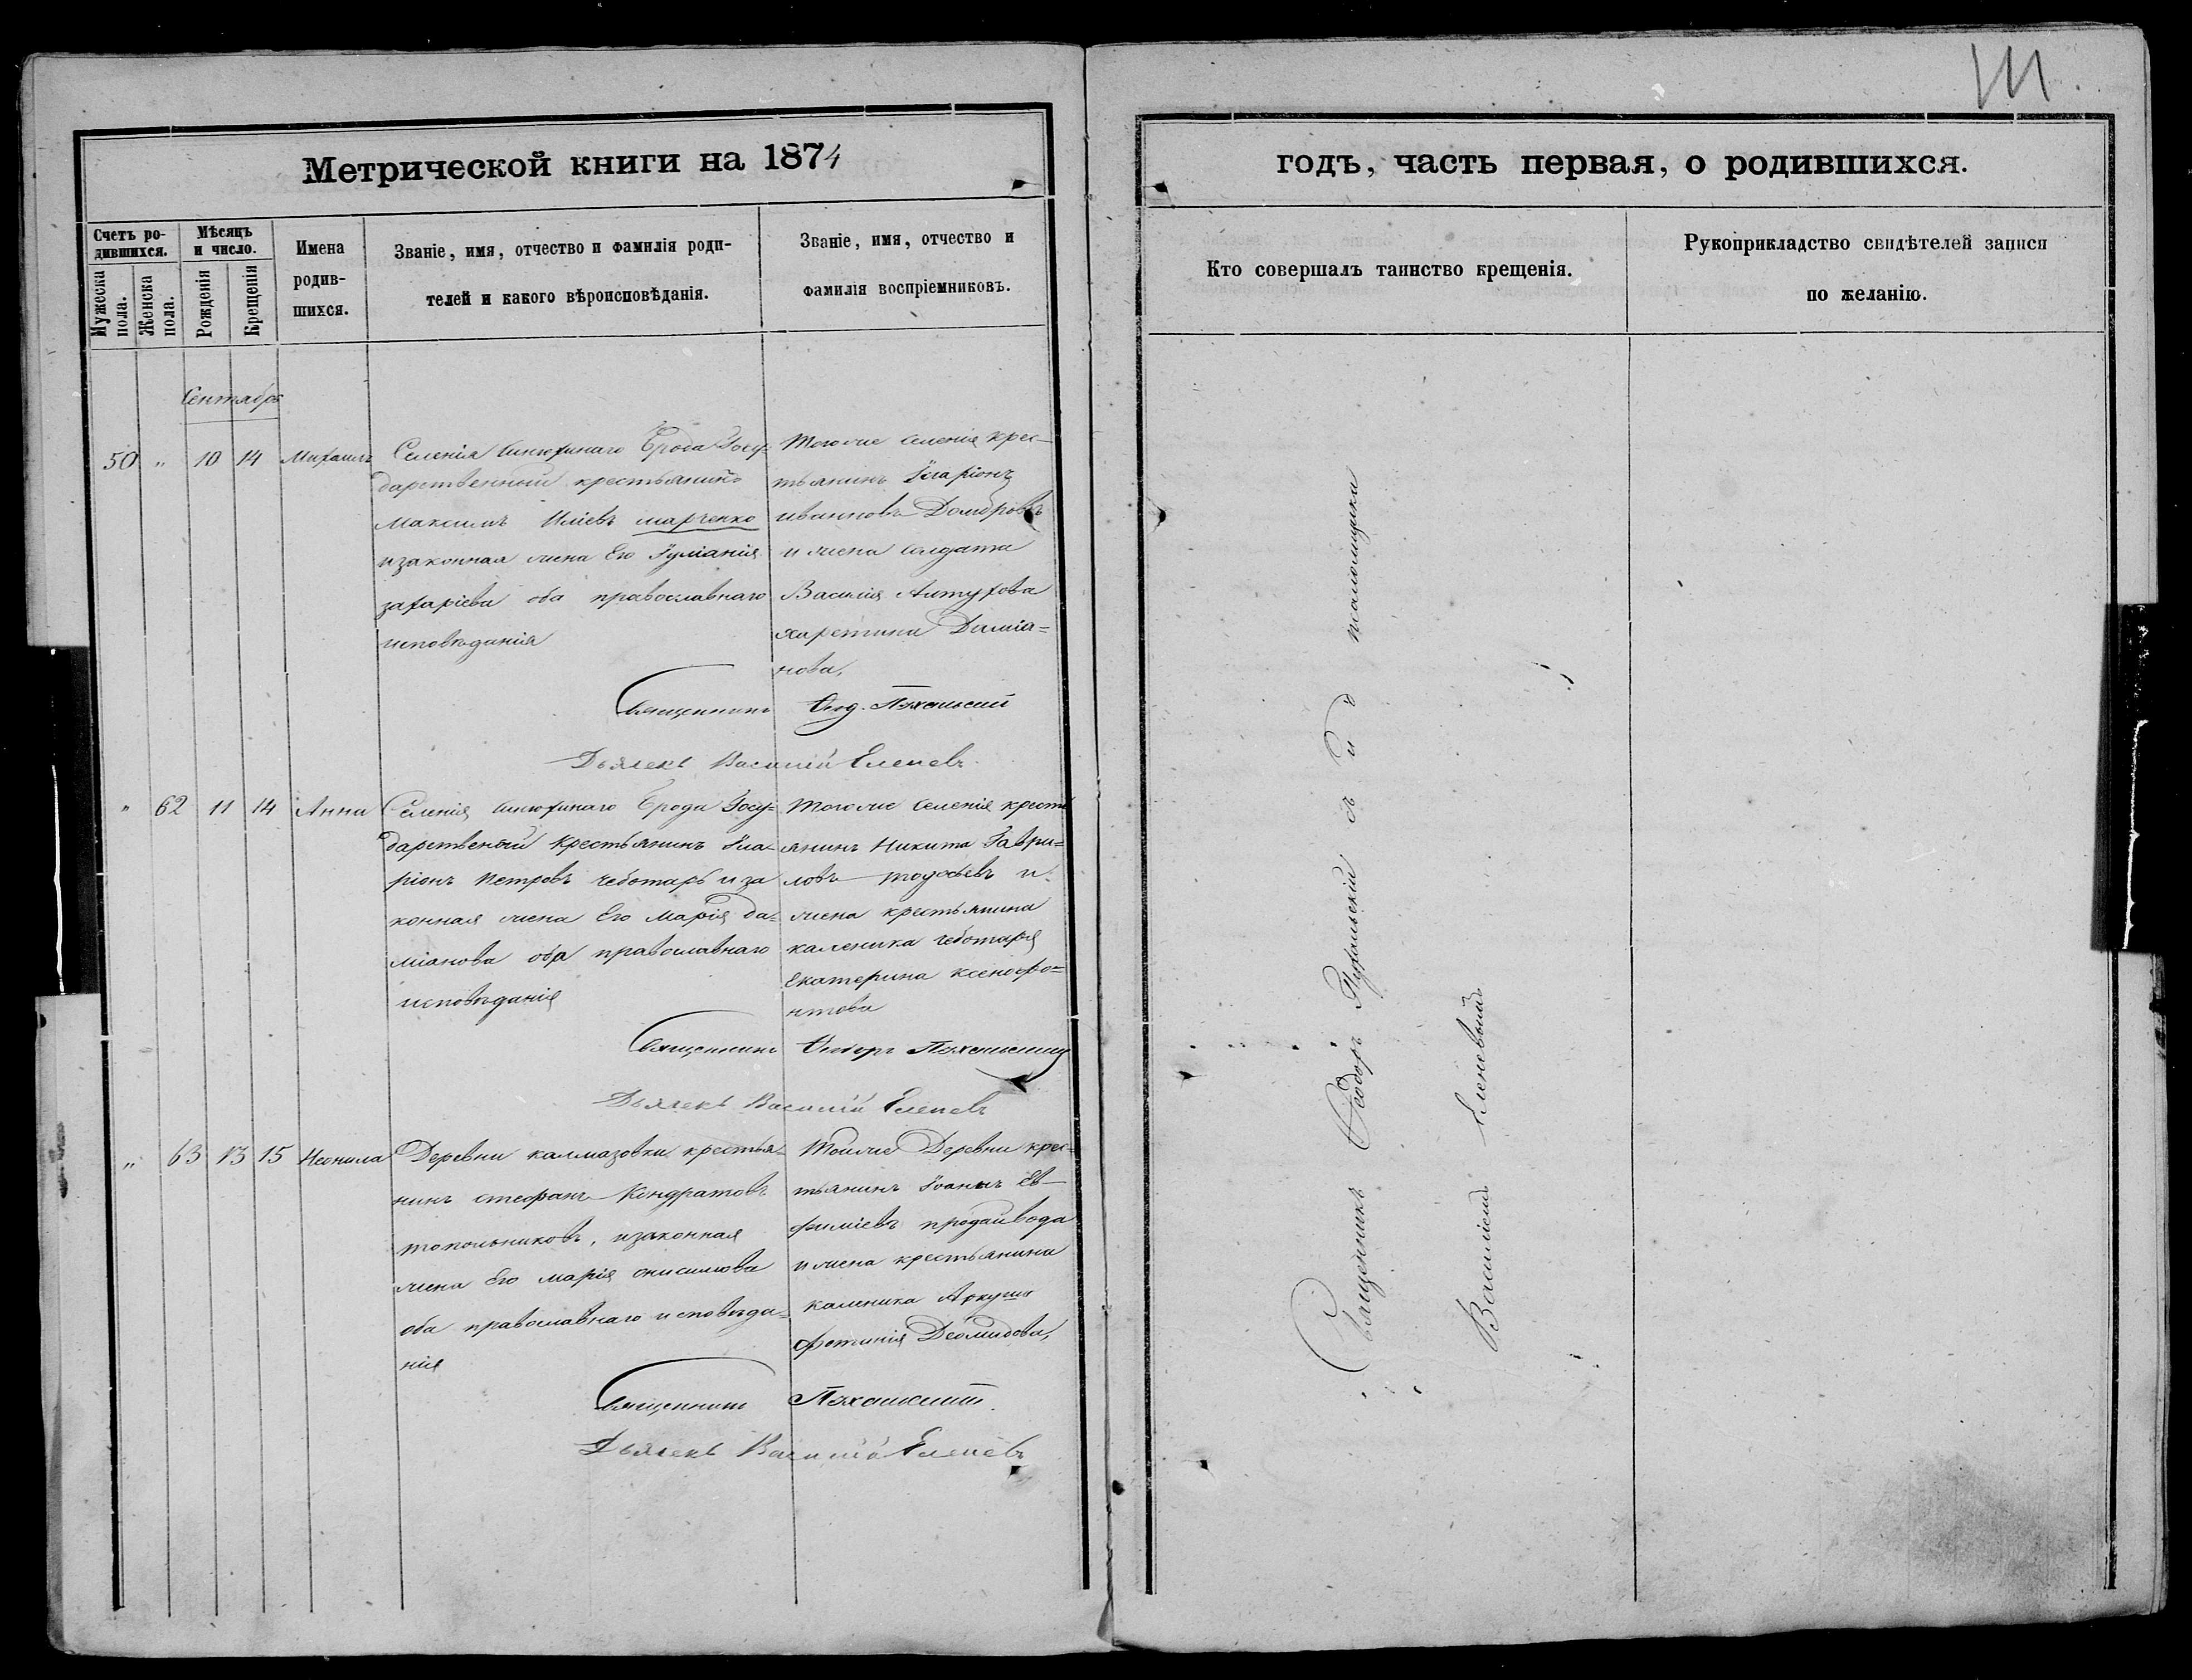 111.
Метрической книги на 1874
годъ, часть первая, о родившихся.
Счетъ ро-
дившихся.
Мужеска
пола.
Женска
пола.
Мѣсяцъ
и число.
Рожденія
Крещенія
Имена
родив-
шихся.
Званіе, имя, отчество и фамилія роди-
телей и какого вѣроисповѣданія.
Званіе, имя, отчество и
фамилія воспріемниковъ.
Кто совершалъ таинство крещенія.
Рукоприкладство свидѣтелей записи
по желанію.
Сентябрь
50 " 10 14 Михаилъ
Селенія Синюхинаго Брода Госу-
дарственный крестьянинъ
Максимъ Иліевъ марченко
и законная жена Его Іуліанія
захаріева оба православнаго
исповѣданія
Тогоже селенія крес-
тьянинъ Іларіонъ
ивановъ
и жена солдата
Василія
харитина Даміа=
нова,
Священникъ Ѳеод.
Дьячекъ Василій Еленевъ
" 62 11 14 Анна
Селенія Синюхинаго Брода Госу=
дарственный крестьянинъ Іла-
ріонъ Петровъ чеботарь и за
конная жена Его Марія да=
міанова оба православнаго
исповѣданія
Тогоже селенія крестъ
янинъ Никита Гаври=
ловъ тодосьевъ и
жена крестьянина
каленика чеботаря
Екатерина ксенофо=
нтова
Священникъ Ѳеодоръ
Дьячекъ Василій Еленевъ
" 63 13 15 Неонила
Деревни калмазовки крестья-
нинъ стефанъ Кондратовъ
топольниковъ, и законная
жена Его марія онисимова
оба православнаго исповѣда-
нія
Тойже Деревни крес-
тьянинъ Іоаннъ Ев-
фиміевъ продайвода
и жена крестьянина
каленика Аркуша
фотинія Деомидова,
Священникъ
Дьячекъ Василій Еленевъ
Священникъ Ѳеодоръ съ и д псаломщика
Василіемъ Еленевымъ